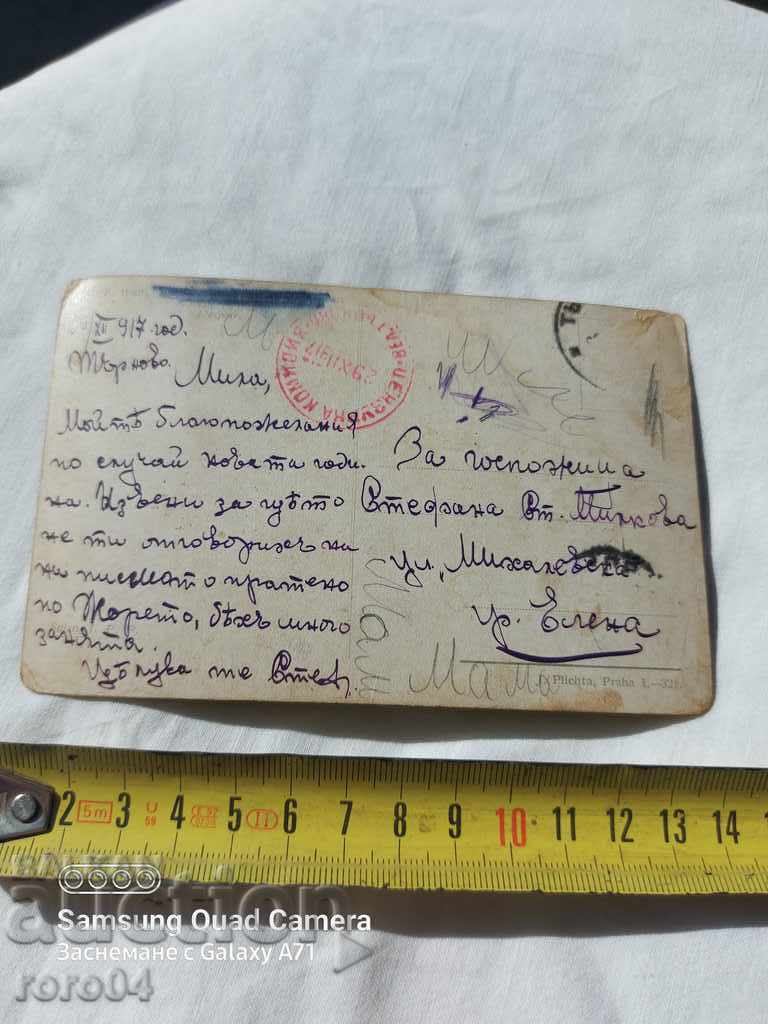 XII 917 год.
Търново.
Мила,
Моитѣ благопожелания
по случай новата годи-
на. Извѣни за гдѣто
не ти отговорихъ на
писмото пратено
по Жорето, бѣхъ много
заната.
Цѣлува те Стеф.
За госпожица
Стефана Ст. Минкова
ул. „Михаловска
гр. Елена
Мама
ЦЕНЗУРНА КОМИСИЯ
29 XII 917
Plichta, Praha I.—321
2 5m 3 4 5 II 6 7 8 9 10 11 12 13 14
auction
Samsung Quad Camera
Заснемане с Galaxy A71
roro04